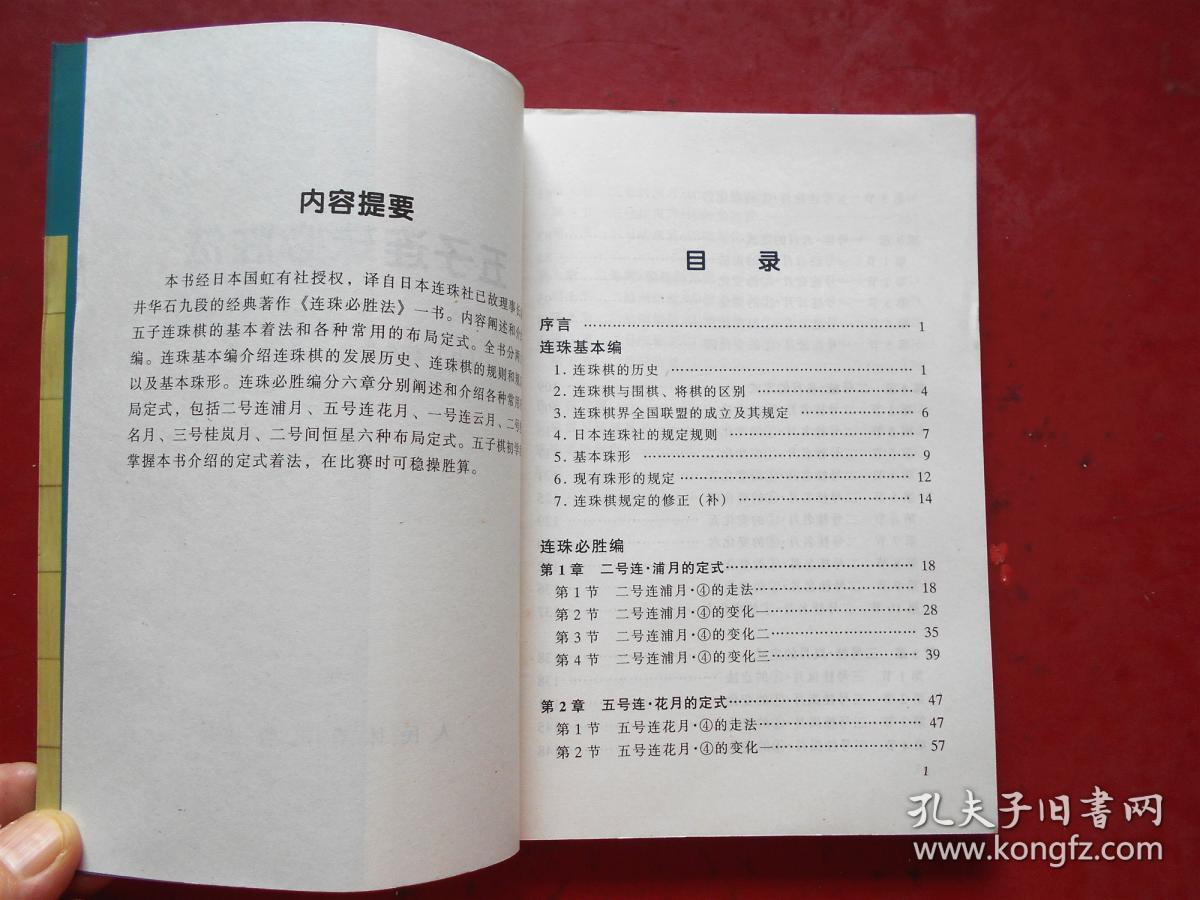 内容提要
本书经日本国虹有社授权，译自日本连珠社已故理事长
井华石九段的经典著作《连珠必胜法》一书。内容阐述和介
五子连珠棋的基本着法和各种常用的布局定式。全书分两
编。连珠基本编介绍连珠棋的发展历史、连珠棋的规则和
以及基本珠形。连珠必胜编分六章分别阐述和介绍各种常用
局定式，包括二号连浦月、五号连花月、一号连云月、二号
名月、三号桂岚月、二号间恒星六种布局定式。五子棋初学
掌握本书介绍的定式着法，在比赛时可稳操胜算。
目 录
序言 …… 1
连珠基本编
1. 连珠棋的历史 …… 1
2. 连珠棋与围棋、将棋的区别 …… 4
3. 连珠棋界全国联盟的成立及其规定 …… 6
4. 日本连珠社的规定规则 …… 7
5. 基本珠形 …… 9
6. 现有珠形的规定 …… 12
7. 连珠棋规定的修正（补） …… 14
连珠必胜编
第1章 二号连·浦月的定式 …… 18
第1节 二号连浦月·④的走法 …… 18
第2节 二号连浦月·④的变化一 …… 28
第3节 二号连浦月·④的变化二 …… 35
第4节 二号连浦月·④的变化三 …… 39
第2章 五号连·花月的定式 …… 47
第1节 五号连花月·④的走法 …… 47
第2节 五号连花月·④的变化一 …… 57
1
孔夫子旧書网
www.kongfz.com